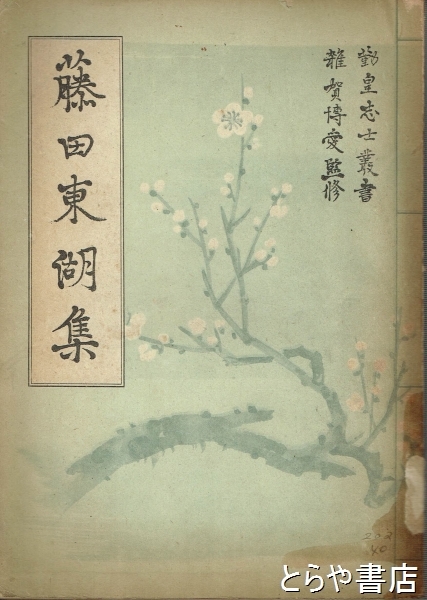 勤皇志士叢書
雜賀博愛監修
藤田東湖集
とらや書店